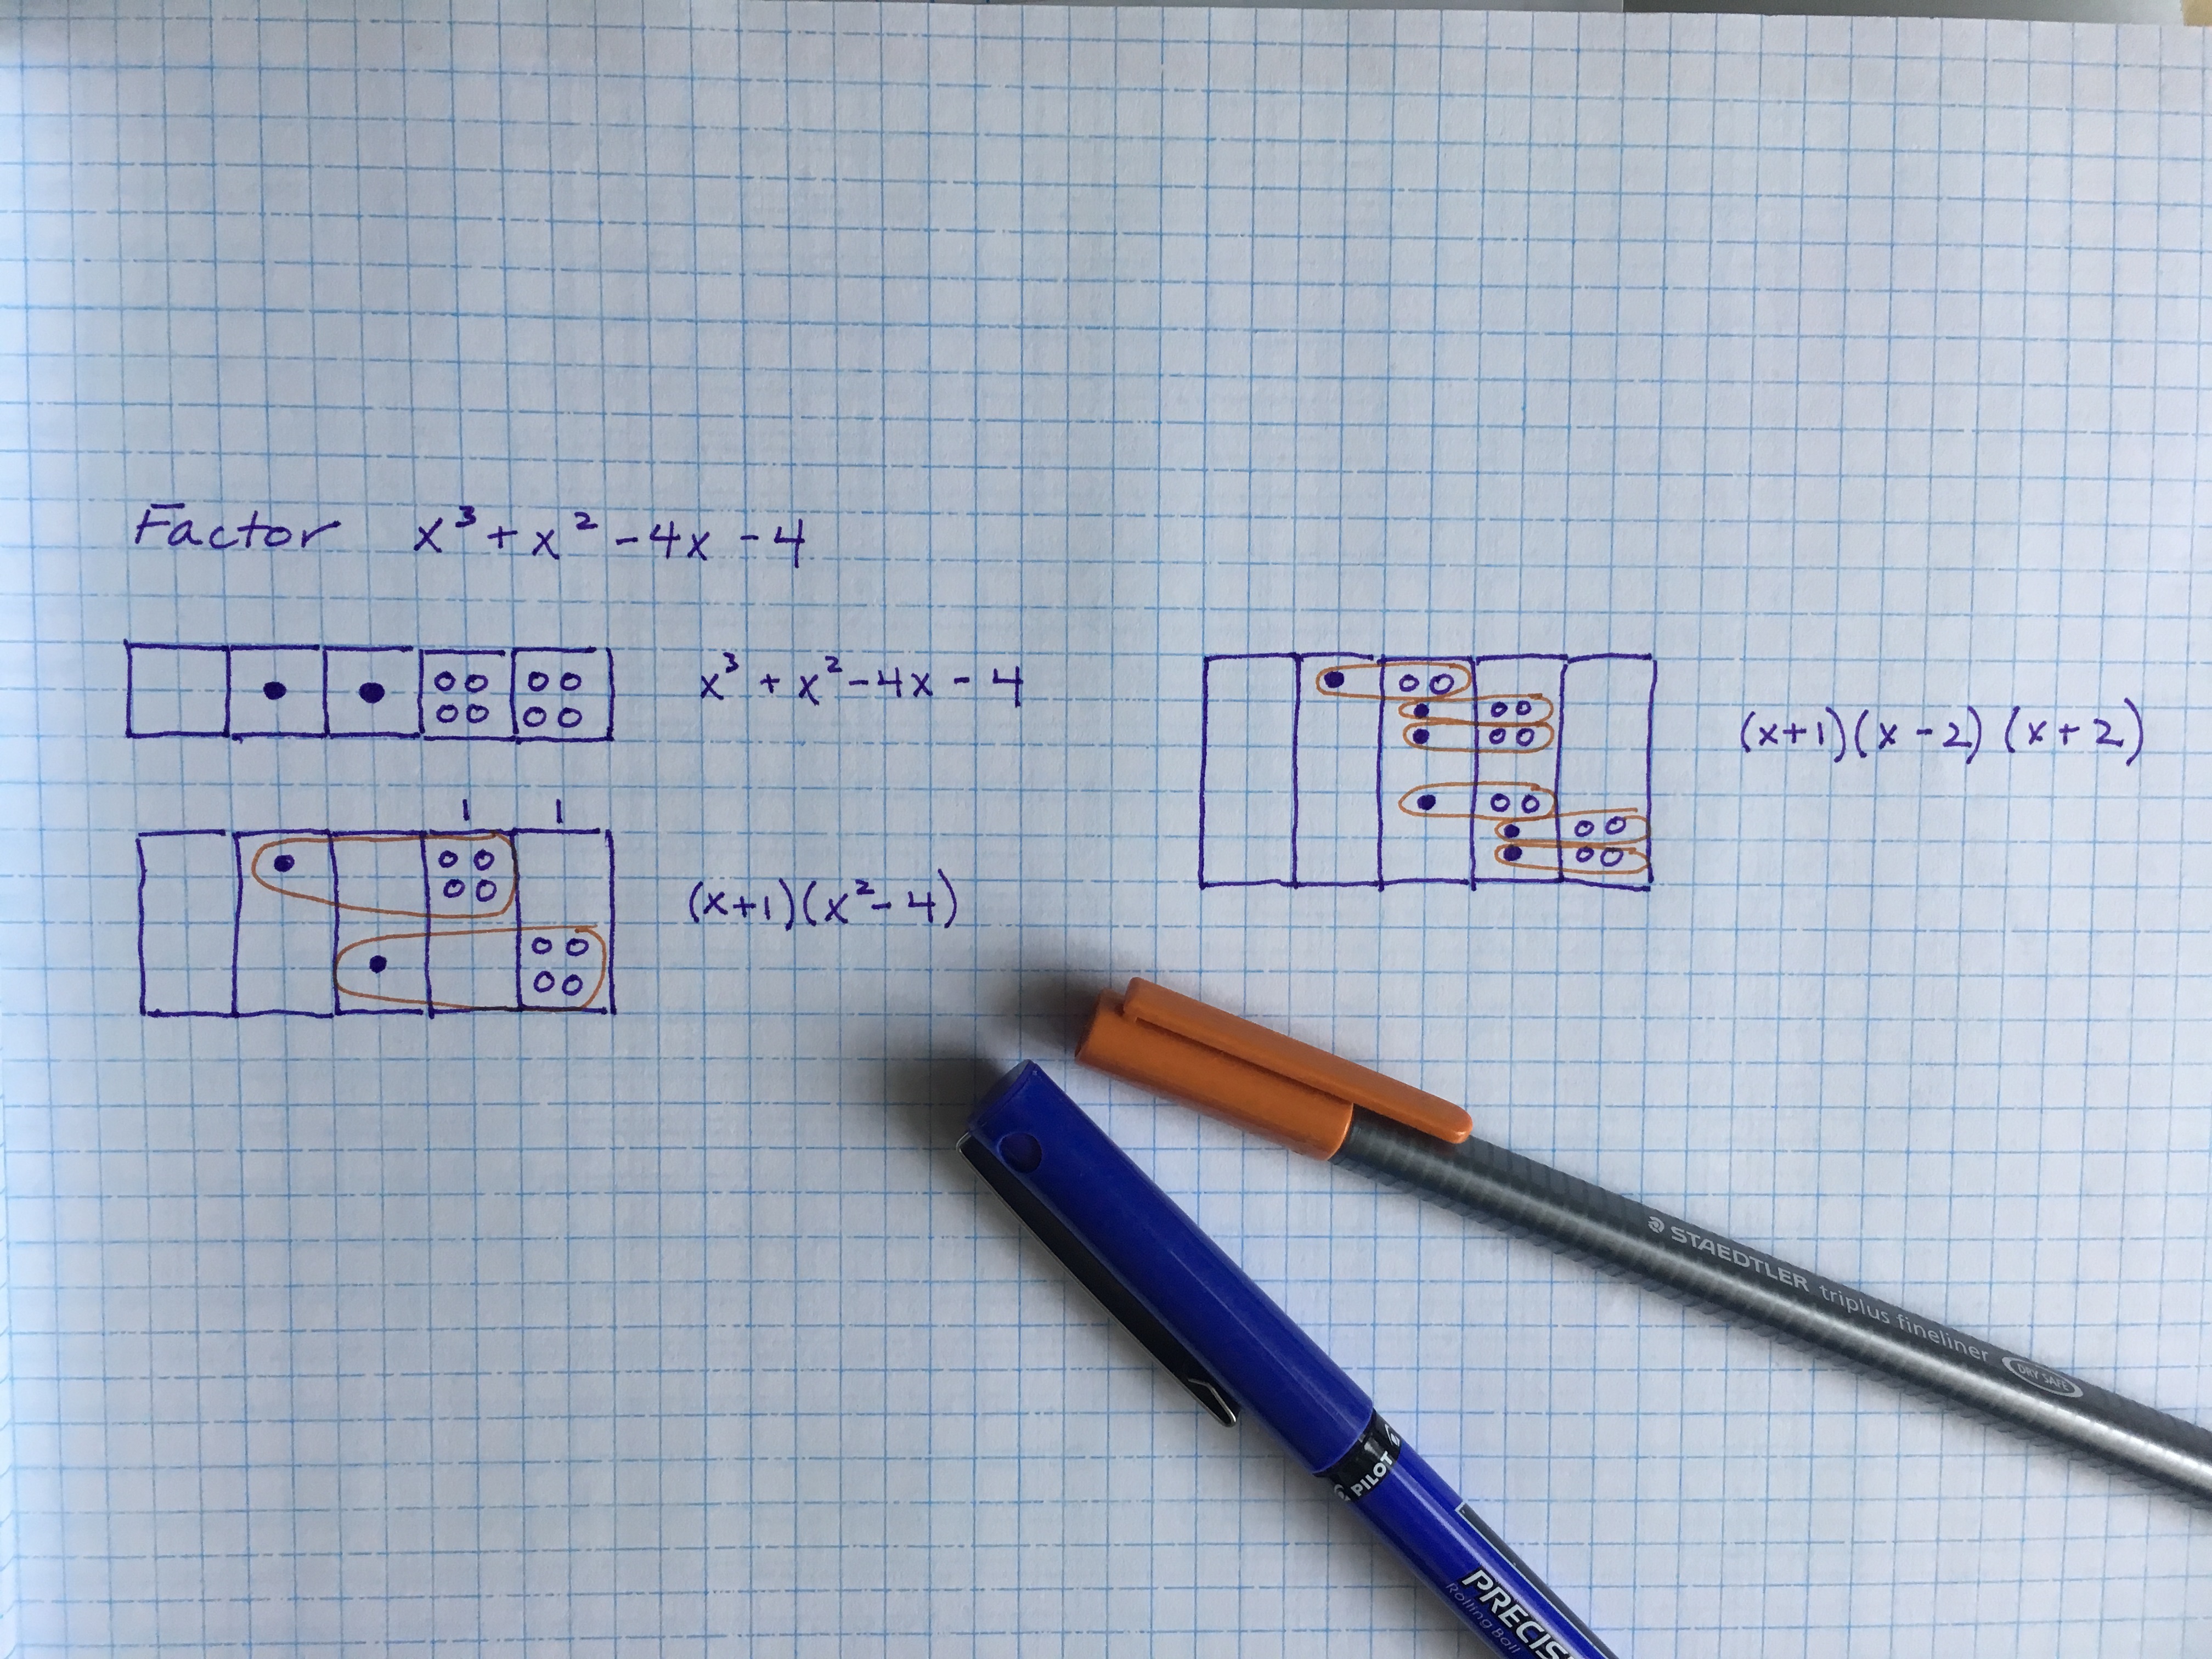 Factor x³ + x² - 4x - 4
x³ + x² - 4x - 4
1 1
(x+1)(x² - 4)
(x+1)(x - 2)(x + 2)
STAEDTLER triplus fineliner DRY SAFE
PILOT
PRECIS
Rolling Ball